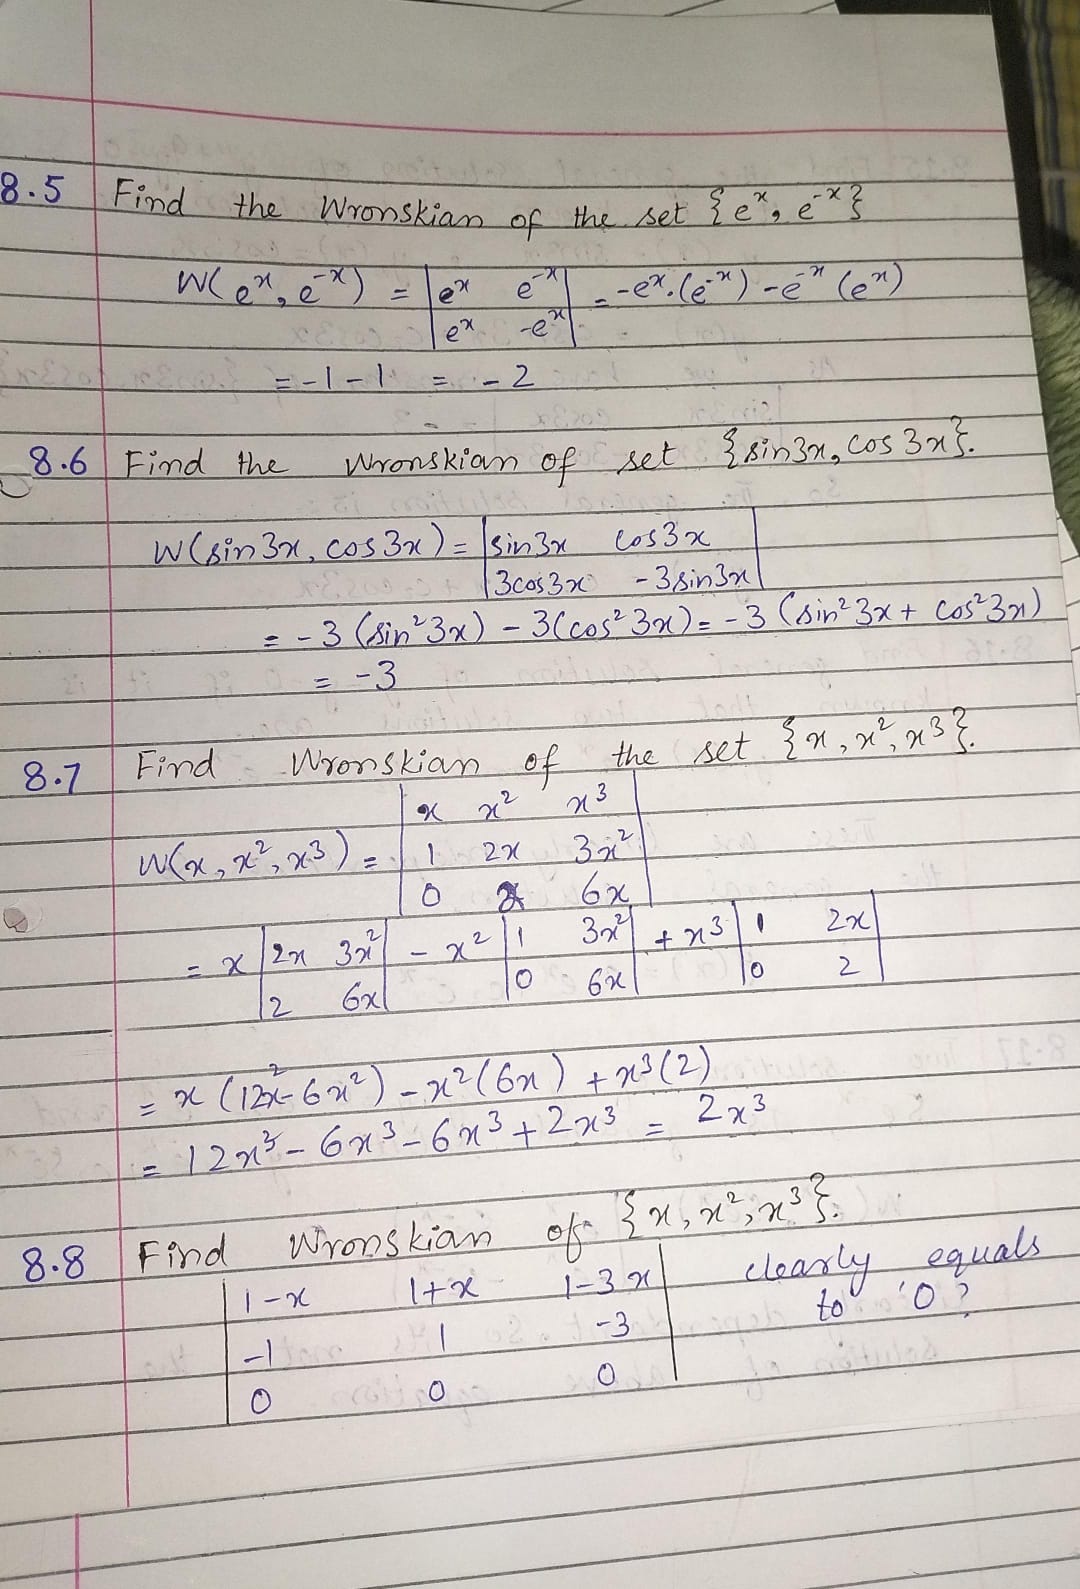 8.5 Find the Wronskian of the set {eˣ, e⁻ˣ}
W(eˣ, e⁻ˣ) = |eˣ e⁻ˣ| = -eˣ.(e⁻ˣ) - e⁻ˣ(eˣ)
|eˣ -e⁻ˣ|
= -1 - 1 = -2
8.6 Find the Wronskian of set {sin3x, cos 3x}.
W(sin 3x, cos 3x) = |sin 3x cos 3x|
|3cos 3x -3sin 3x|
= -3 (sin² 3x) - 3(cos² 3x) = -3 (sin² 3x + cos² 3x)
= -3
8.7 Find Wronskian of the set {x, x², x³}.
|x x² x³|
W(x, x², x³) = |1 2x 3x²|
|0 2 6x|
= x |2x 3x²| - x² |1 3x²| + x³ |1 2x|
|2 6x| |0 6x| |0 2|
= x (12x² - 6x²) - x² (6x) + x³ (2)
= 12x³ - 6x³ - 6x³ + 2x³ = 2x³
8.8 Find Wronskian of {x, x², x³}.
|1-x 1+x 1-3x| clearly equals
|-1 1 -3| to '0?
|0 0 0|